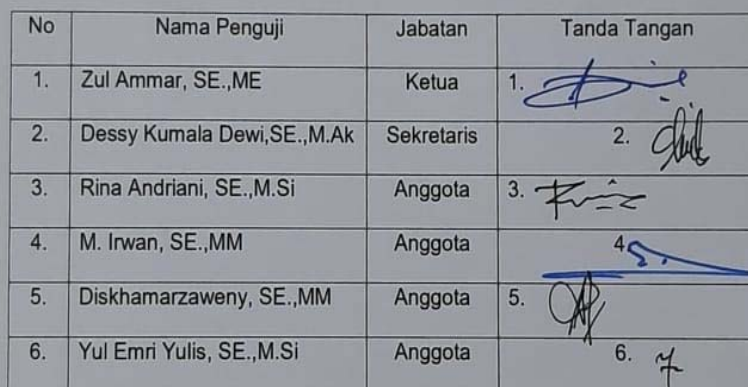 No Nama Penguji Jabatan Tanda Tangan
1. Zul Ammar, SE.,ME Ketua 1.
2. Dessy Kumala Dewi,SE.,M.Ak Sekretaris 2.
3. Rina Andriani, SE.,M.Si Anggota 3.
4. M. Irwan, SE.,MM Anggota 4
5. Diskhamarzaweny, SE.,MM Anggota 5.
6. Yul Emri Yulis, SE.,M.Si Anggota 6.